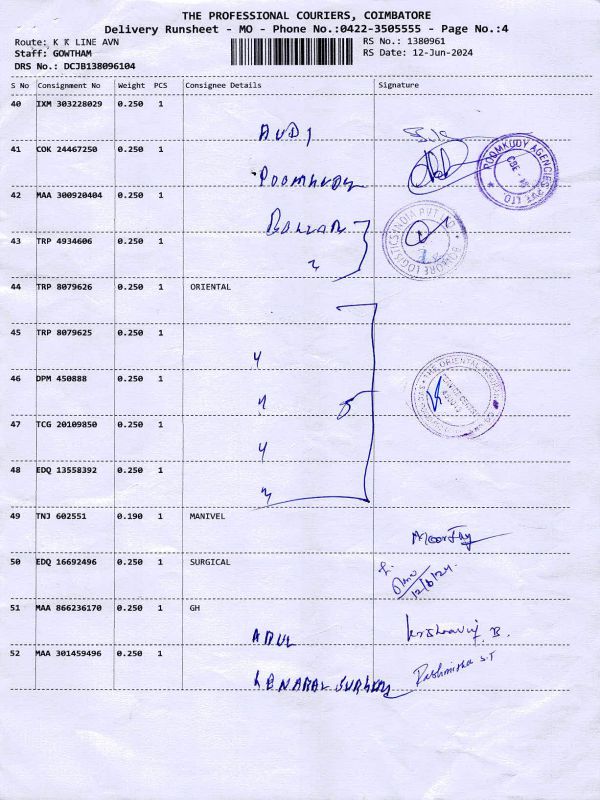 THE PROFESSIONAL COURIERS, COIMBATORE
Delivery Runsheet - MO - Phone No.:0422-3505555 - Page No.:4
Route: K K LINE AVN
RS No.: 1380961
Staff: GOWTHAM
RS Date: 12-Jun-2024
DRS No.: DCJB138096104
S No Consignment No Weight PCS Consignee Details Signature
40 IXM 303228029 0.250 1
AUDI
41 COK 24467250 0.250 1
POOMKUDY
POOMKUDY AGENCIES PVT. LTD
CBE
42 MAA 300920404 0.250 1
43 TRP 4934606 0.250 1
LOGISTICS INDIA PVT LTD
44 TRP 8079626 0.250 1 ORIENTAL
45 TRP 8079625 0.250 1
46 DPM 450888 0.250 1
5
THE ORIENTAL
47 TCG 20109850 0.250 1
48 EDQ 13558392 0.250 1
49 TNJ 602551 0.190 1 MANIVEL
Moorthy
50 EDQ 16692496 0.250 1 SURGICAL
12/6/24
51 MAA 866236170 0.250 1 GH
ARUL
52 MAA 301459496 0.250 1
Rashmisha S.T
GENARAL SURGERY